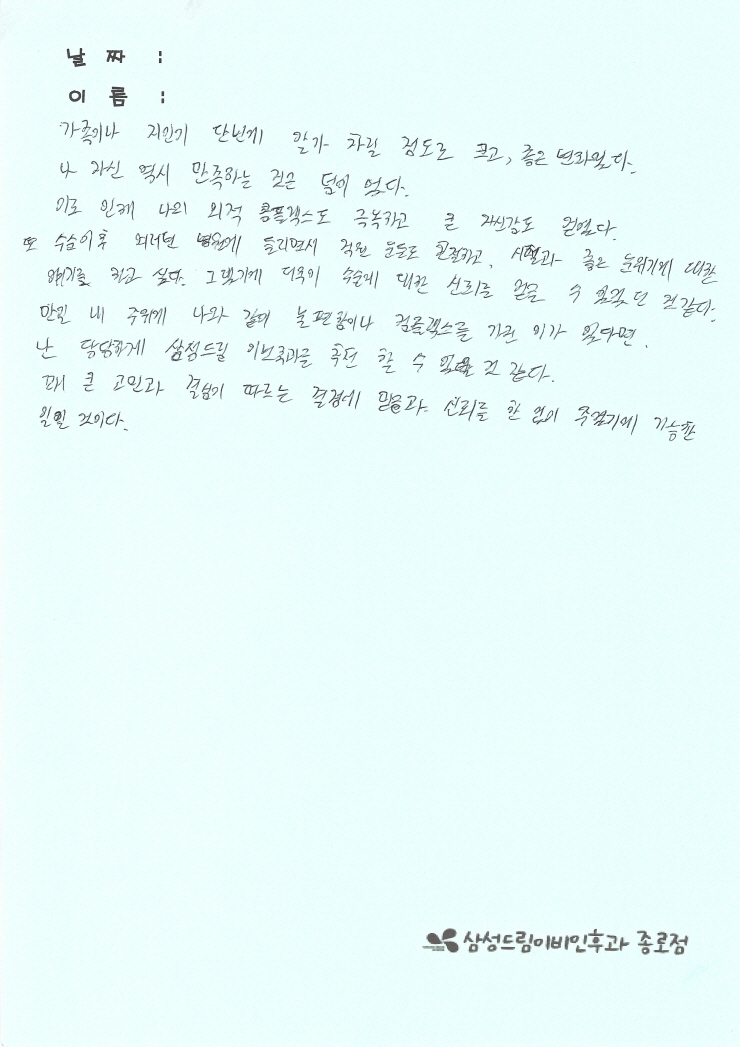 날 짜 :
이 름 :
가족이나 지인이 단번에 알가 차릴 정도로 크고, 좋은 변화였다.
나 자신 역시 만족하는 것은 덤이 었다.
이로 인해 나의 외적 콤플렉스도 극복하고 큰 자신감도 얻었다.
또 수술이후 외러번 병원에 들리면서 직원 분들도 친절하고, 시설과 좋은 분위기에 대한
얘기를 하고 싶다. 그렇기에 더욱이 수술에 대한 신뢰를 얻을 수 있었던 것 같다.
만일 내 주위에 나와 같이 불편함이나 컴플렉스를 가진 이가 있다면,
난 당당하게 삼성드림 이비인후과를 추천 할 수 있을 것 같다.
꽤 큰 고민과 결심이 따르는 결정에 믿음과 신뢰를 한 없이 주었기에 가능한
일일 것이다.
삼성드림이비인후과 종로점